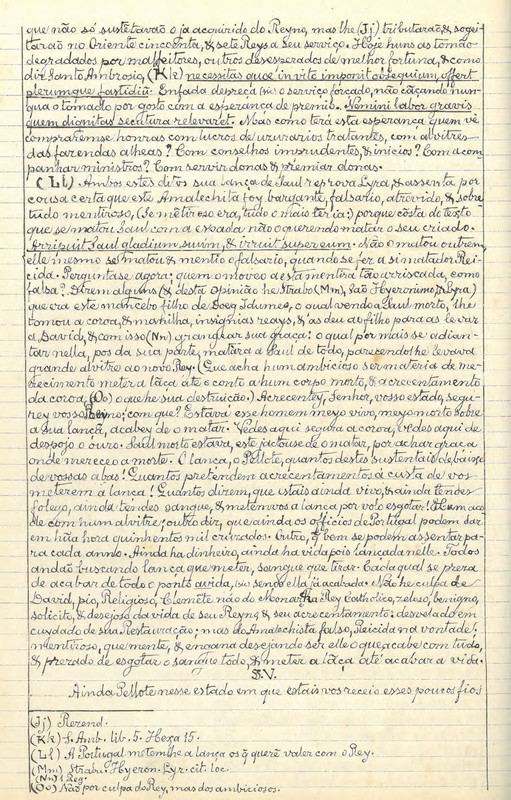 que não só sustētavão o ja acquirido do Reyno, mas lhe (Jj) tributaraõ,& sogei-
tarão no Oriente cincoenta,& sete Reys a seu serviço. Hoje huns as tomão
degradados por malfeitores, outros desesperados de melhor fortuna,& como
diz Santo Ambrosio, (Kk) necessitas quœ invito imponit obsequium, offert
plerumque fastidiū. Enfada despreça (sic) o serviço forçado, não cāçando nun-
qua o tomado por gosto com a esperança de premio. Nemini labor gravis
quem dignitas secutura relevaret. Mas como terá esta esperança quem vê
compraremse honras com lucros de uzurarios tratantes, com alvitres
das fazendas alheas? Com conselhos imprudentes,& inicios? Com acom
panhar ministros? Com servir donas & premiar donas.
(Ll) Ambos estes ditos sua lança de Saul reprova Lyra,& assenta por
cousa certa que este Amalechita foy bargante, falsario, atrevido, & sobre
tudo mentiroso, (se mētiroso era, tudo o mais teria) porque cōsta do texto
que se matou Saul com a espada não o querendo matar o seu criado.
Arripuit Saul gladium suum, & irruit super eum. Não o matou outrem,
elle mesmo se matou & mentio o falsario, quando se fez a si matador Rei-
cida. Perguntase agora: quem o moveo a esta mentira tão arriscada, como
falsa? Dizem alguns (& desta opinião he Strabo (Mm), São Hyeronimo,& Lyra)
que era este mancebo filho de Doeg Idumeo, o qual vendo a Saul morto, lhe
tomou a coroa,& manilha, insignias reays,& as deu ao filho para as levar
a David,& com isso (Nn) grangear sua graça: o qual por mais se adian-
tar nella, pos da sua parte, matára a Saul de todo, parecendolhe levava
grande alvitre ao novo Rey. (Que acha hum ambicioso ser materia de me-
recimento meter a lāça até o conto a hum corpo morto,& acrecentamento
da coroa, (Oo) o que he sua destruição.) Acrecentey, Senhor, vosso estado, segu-
rey vosso Reyno: com que? Estava esse homem meyo vivo, meyo morto sobre
a sua lança, acabey de o matar. Vedes aqui segura a coroa, vedes aqui de
despojo o ouro. Saul morto estava, este jactouse de o matar, por achar graça
onde mereceo a morte. O lança, o Pellote, quantos destes sustentais debaixo
de vossas abas! Quantos pretendem acrecentamentos á custa de vos
meterem a lança! Quātos dizem, que estais ainda vivo,& ainda tendes
folego, ainda tendes sangue,& metemvos a lança por volo esgotar! Hum aco
de com hum alvitre; outro diz, que ainda os officios de Portugal podem dar
em hūa hora quinhentos mil cruzados. Outro, q̄ bem se podem assentar pa-
ra cada anno. Ainda ha dinheiro, ainda ha vida pois lançada nelle. Todos
andão buscando lança que meter, sangue que tirar. Cada qual se preza
de acabar de todo o ponto a vida, (sic) sendo ella ja acabada. Não he culpa de
David, pio, Religioso, Clemēte não do Monarcha Rey Catholico, zeloso, benigno,
solicito,& desejoso da vida de seu Reyno,& seu acrecentamento: desvelado em
cuydado de sua Restauração; mas do Amalechista falso, Reicida na vontade!
mientiroso, que mente, & engana desejando ser elle o que acabe com tudo,
& prezado de esgotar o sangue todo,& meter a lāça até acabar a vida.
§.V.
Ainda Pellote nesse estado em que estais vos receio esses poucos fios
(Jj) Rezend.
(Kk) S. Amb. lib. 5. Hexa 15.
(Ll) A Portugal metemlhe a lança os q̄ querē valer com o Rey.
(Mm) Strabu. Hyeron. Lyr. cit. loc.
(Nn) 1 Reg.
(Oo) Não por culpa do Rey, mas dos ambiciosos.